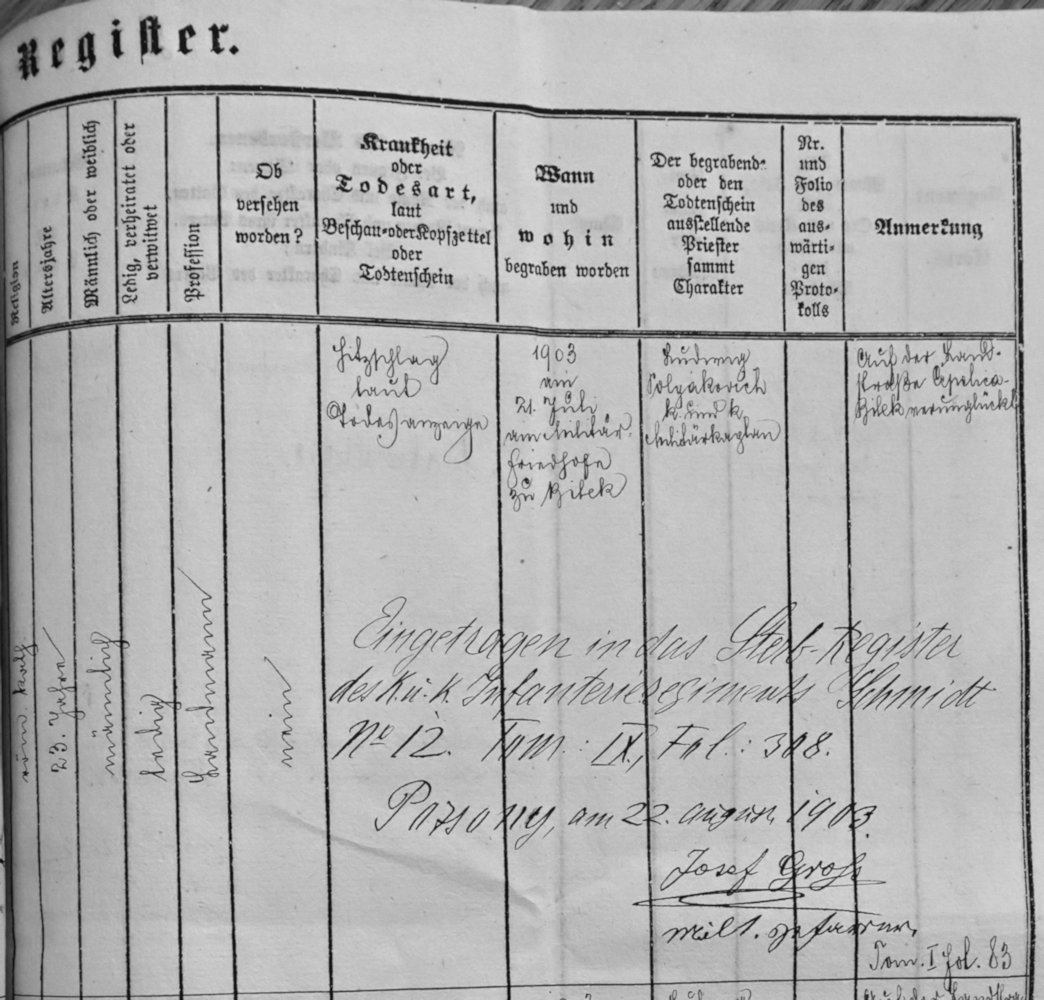 Register.
Religion
Altersjahre
Männlich oder weiblich
Ledig, verheiratet oder
verwitwet
Profession
Ob
versehen
worden?
Krankheit
oder
Todesart,
laut
Beschau- oder Kopfzettel
oder
Todtenschein
Wann
und
wohin
begraben worden
Der begrabende
oder den
Todtenschein
ausstellende
Priester
sammt
Charakter
Nr.
und
Folio
des
aus-
wärti-
gen
Proto-
kolls
Anmerkung
röm. kath
23. Jahre
männlich
ledig
Landmann
nein
Hitzschlag
laut
Todesanzeige
1903
am
21. Juli
am Militär-
friedhofe
zu Bilek
Ludwig
k. und k.
Militärkaplan
Auf der Land-
straße
Bilek verunglückt
Eingetragen in das Sterb-Register
des K. u. K. Infanterieregiments Schmidt
No 12. Tom.: IX., Fol.: 308.
Pozsony, am 22. August 1903.
Josef Groß
milt. Pfarrer.
Tom. I fol. 83